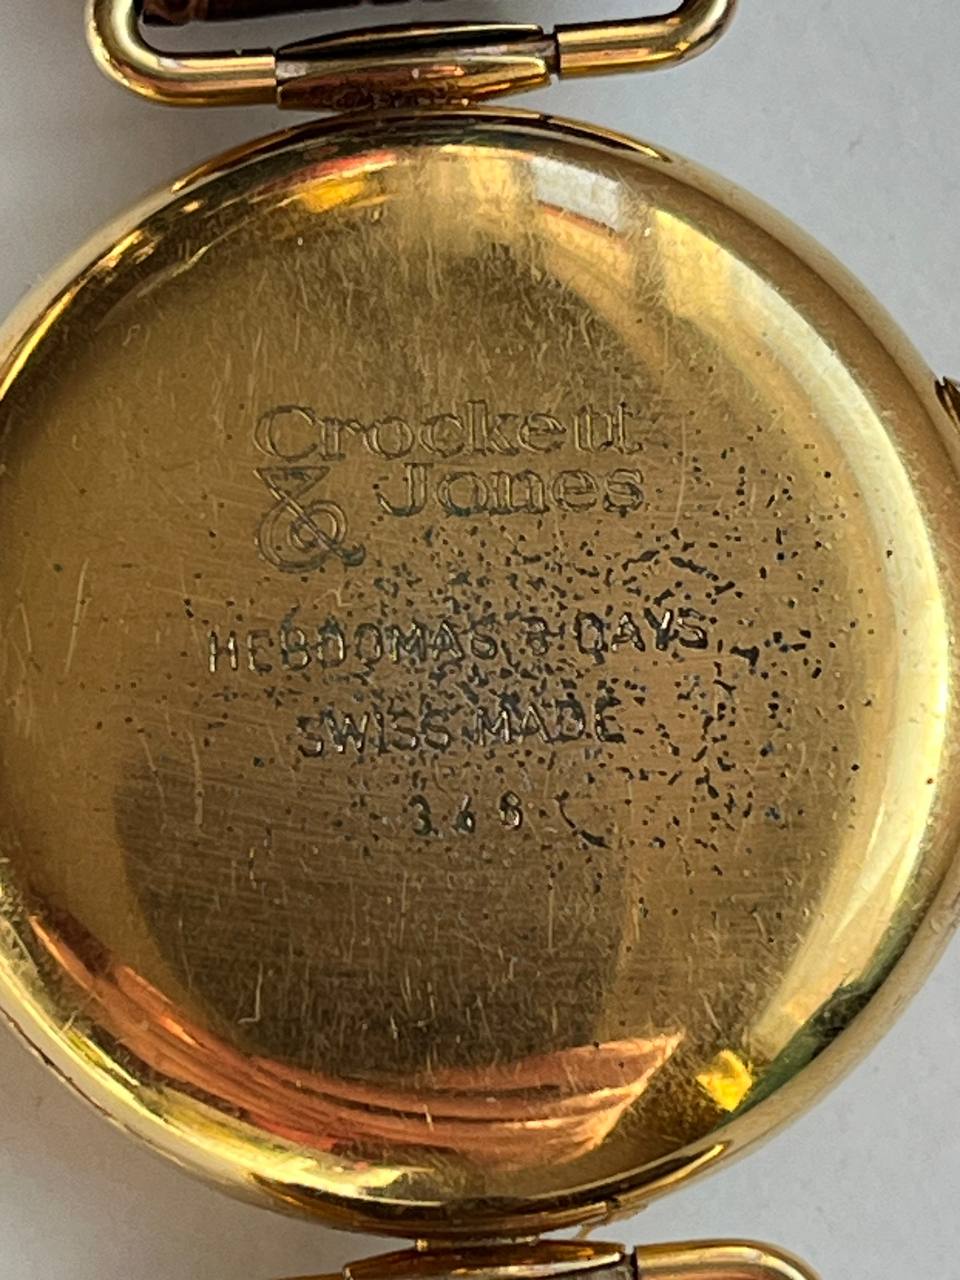 Crockett
& Jones
HEBDOMAS 8 DAYS
SWISS MADE
368